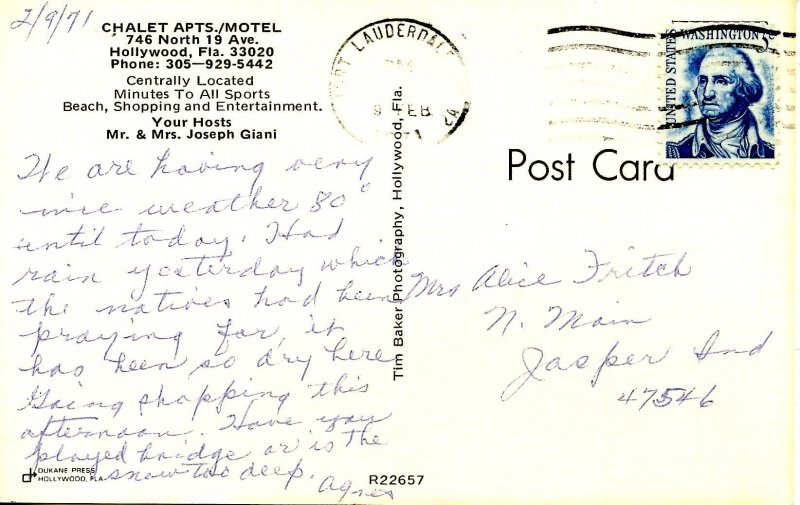 2/9/71
CHALET APTS./MOTEL
746 North 19 Ave.
Hollywood, Fla. 33020
Phone: 305—929-5442
Centrally Located
Minutes To All Sports
Beach, Shopping and Entertainment.
Your Hosts
Mr. & Mrs. Joseph Giani
We are having very
nice weather 80°
until today. Had
rain yesterday which
the natives had been
praying for, it
has been so dry here
Going shopping this
afternoon. Have you
played bridge or is the
snow too deep.
Agnes
DUKANE PRESS
HOLLYWOOD, FLA.
Tim Baker Photography, Hollywood, Fla.
R22657
FORT LAUDERDALE
PM
9 FEB
UNITED STATES
WASHINGTON 5c
Post Card
Mrs Alice Fritch
N. Main
Jasper Ind
47546